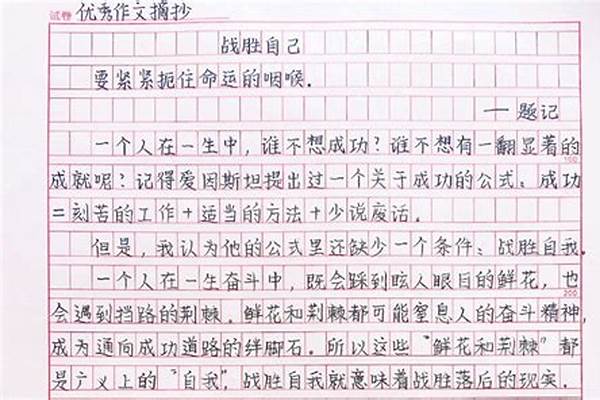 试卷 优秀作文摘抄
战胜自己
要紧紧扼住命运的咽喉.
—题记
一个人在一生中,谁不想成功?谁不想有一翻显著的
100
成就呢?记得爱因斯坦提出过一个关于成功的公式:成功
=刻苦的工作+适当的方法+少说废话.
但是,我认为他的公式里还缺少一个条件:战胜自我.
一个人在一生奋斗中,既会踩到眩人眼目的鲜花,也
200
会遇到挡路的荆棘.鲜花和荆棘都可能窒息人的奋斗精神,
成为通向成功道路的绊脚石.所以这些"鲜花和荆棘"都
是广义上的"自我",战胜自我就意味着战胜落后的现实.